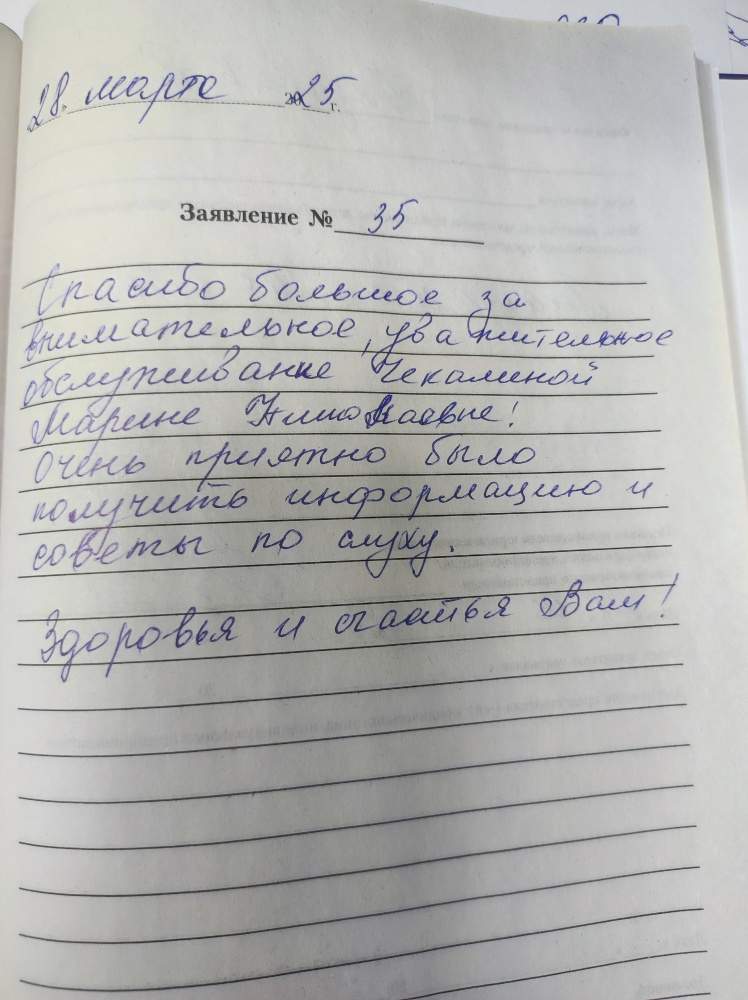 28. марта 2025 г.
Заявление № 35
Спасибо большое за
внимательное, уважительное
обслуживание Чекалиной
Марине
Очень приятно было
получить информацию и
советы по слуху.
Здоровья и счастья Вам!